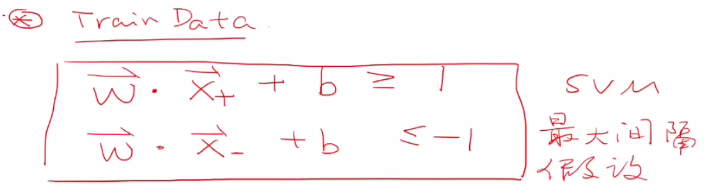 ※ Train Data
w⃗ · x⃗₊ + b ≥ 1
w⃗ · x⃗₋ + b ≤ -1
SVM
最大间隔
假设